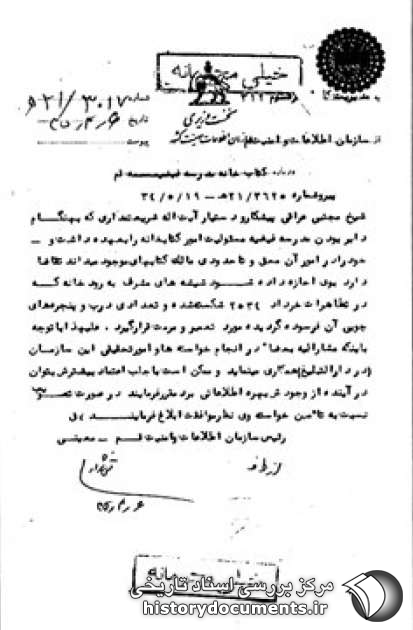 خیلی محرمانه
به مدیریت کل اداره سوم ۳۱۲
شماره ۲۱/۳۰۱۷ ه
نخست وزیری
تاریخ
از سازمان اطلاعات و امنیت قم
پیوست
درباره کتاب خانه مدرسه فیضیه قم
پیرو شماره ۲۱/۳۶۲۰ ه - ۳۴/۵/۱۹
شیخ مجتبی عراقی پیشکار و دستیار آیت اله شریعتمداری که بهنگام
دایر بودن مدرسه فیضیه مسئولیت امور کتابخانه را بعهده داشت و -
خود را در امور آن محق و تا حدودی مالک کتابهای موجود میداند تقاضا
دارد بوی اجازه داده شود شیشه های مشرف به رودخانه که
در تظاهرات خرداد ۲۵۳۴ شکسته شده و تعدادی درب و پنجره های
چوبی آن فرسوده گردیده مورد تعمیر و مرمت قرار گیرد . علیهذا با توجه
باینکه مشارالیه بعضا" در انجام خواسته ها و امور تحقیقی این سازمان
(در دارالتبلیغ) همکاری مینماید و ممکن است با جلب اعتماد بیشترش بتوان
در آینده از وجودش بهره اطلاعاتی برد مقرر فرمایند در صورت تصویب
نسبت به تأمین خواسته وی نظر موافقت ابلاغ فرمایند
رئیس سازمان اطلاعات و امنیت قم - معینی
از طرف
خیلی محرمانه
مرکز بررسی اسناد تاریخی
historydocuments.ir